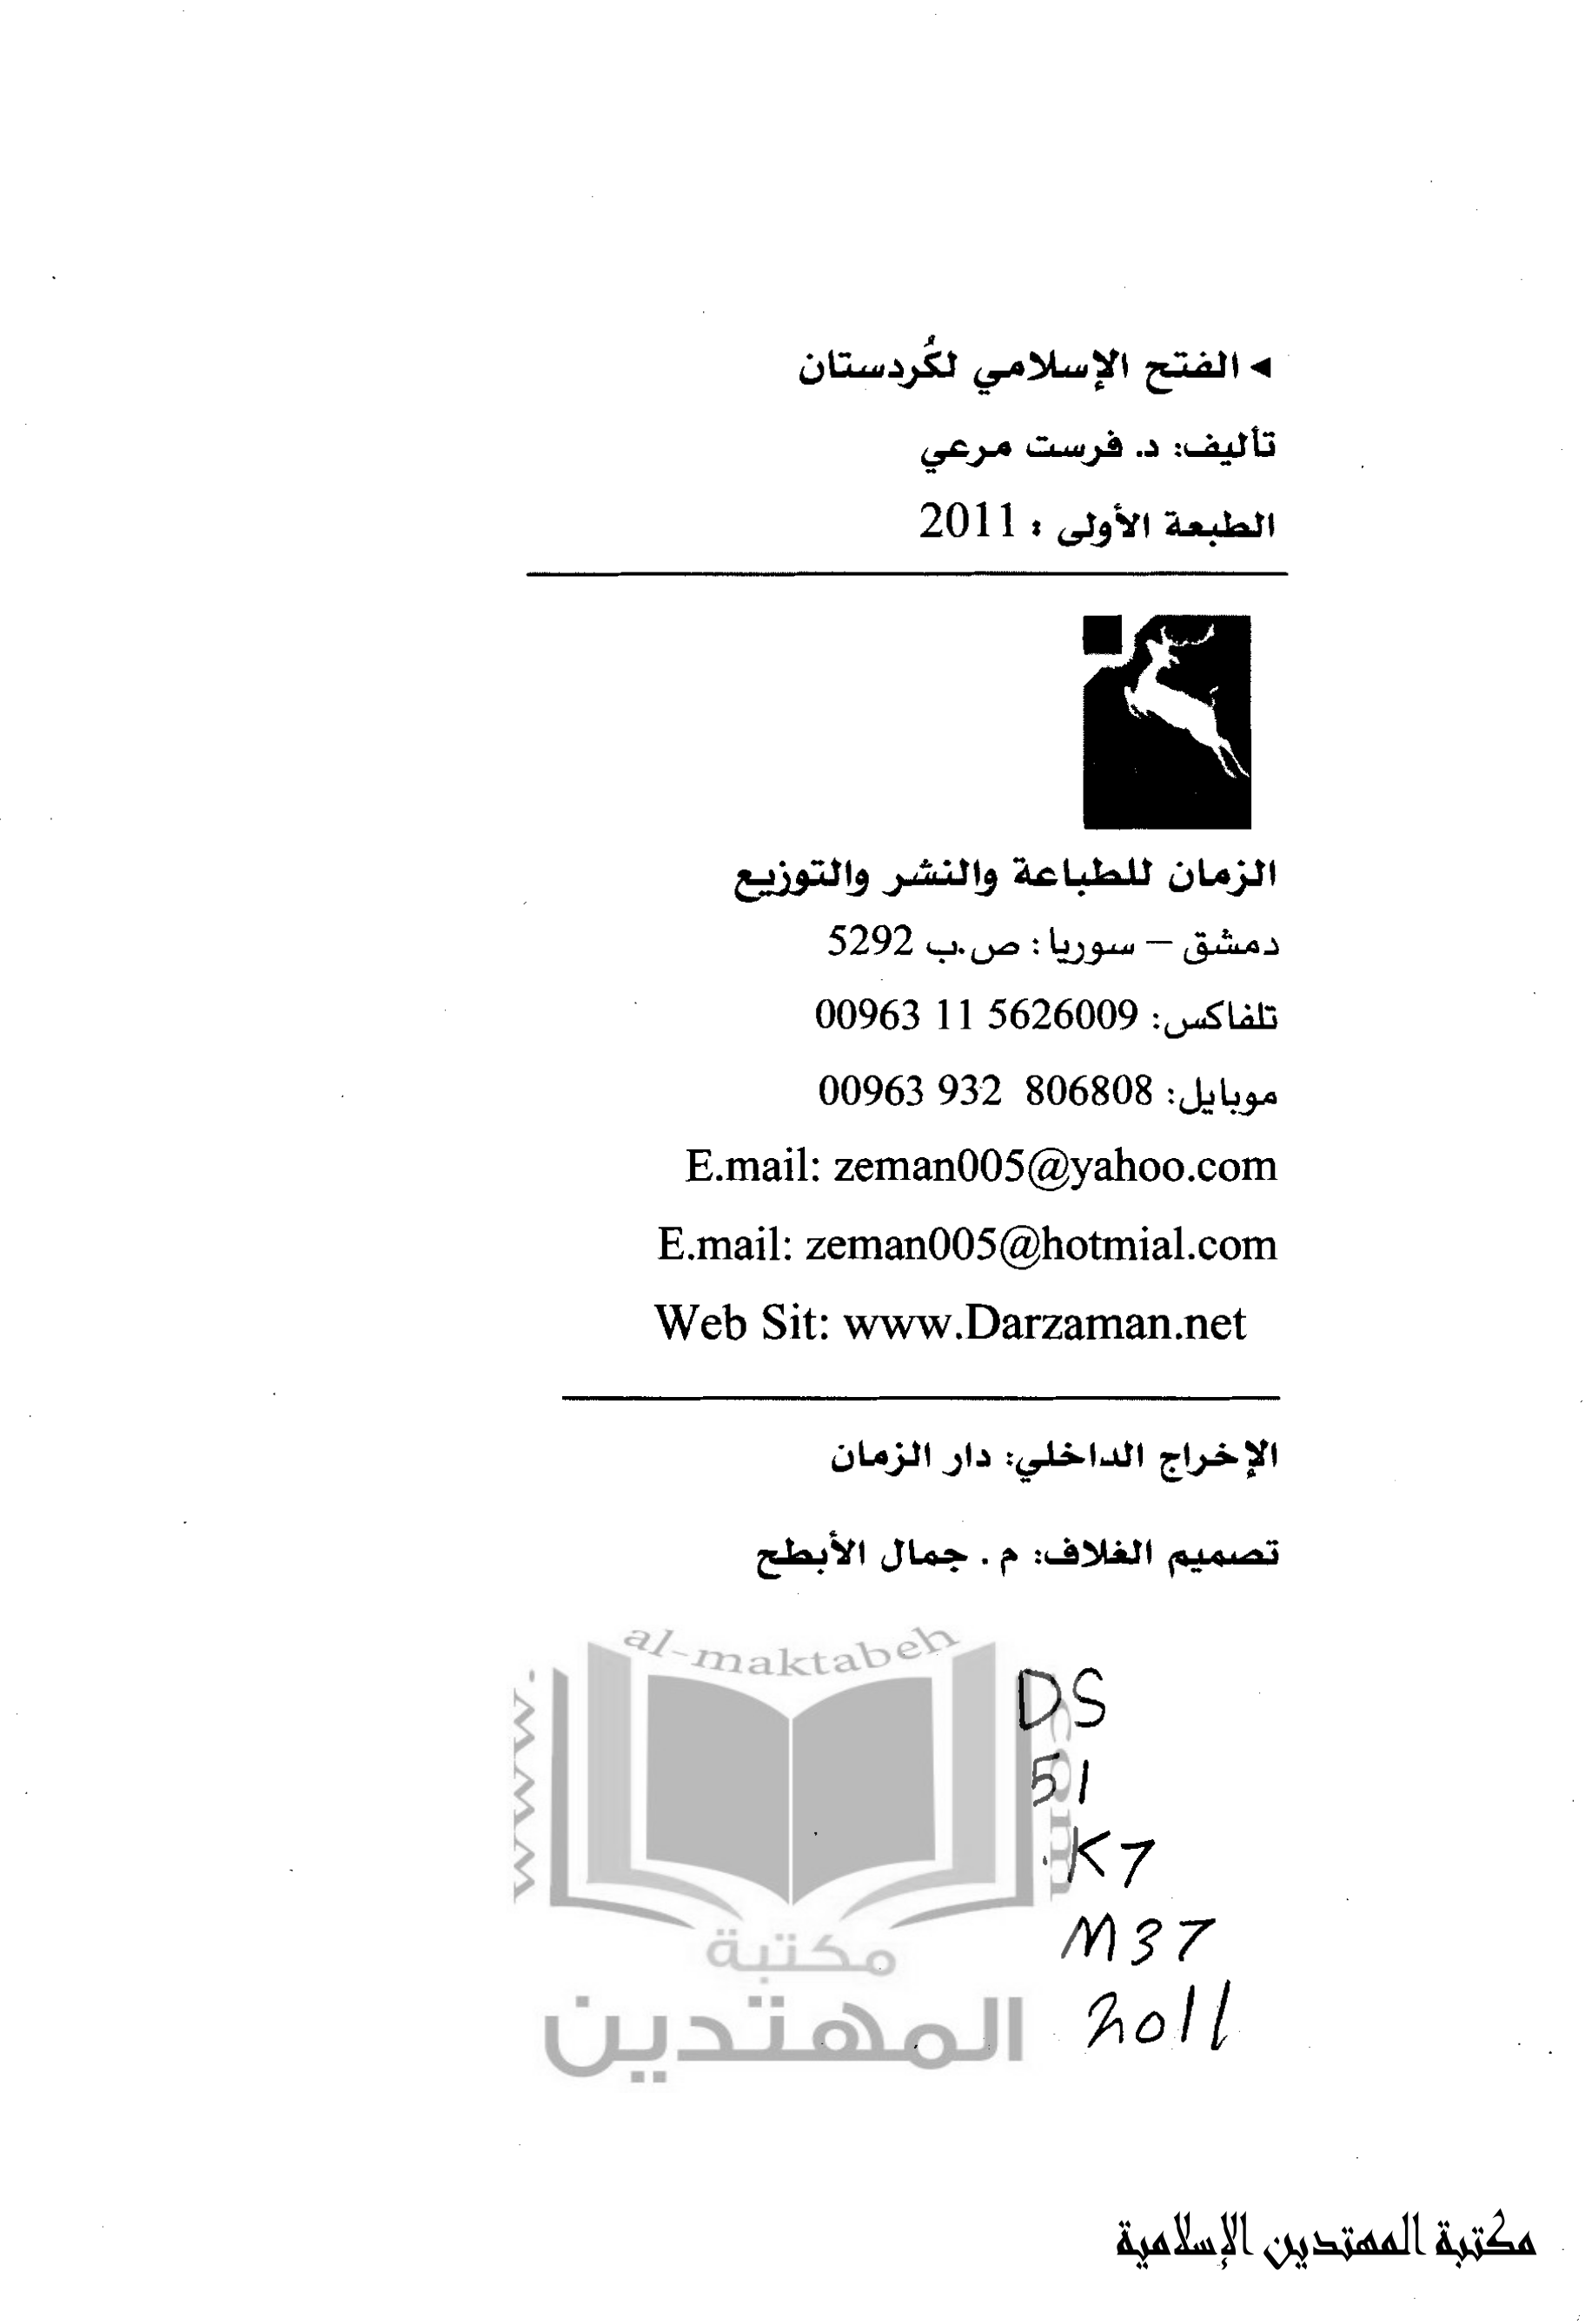 ◄ الفتح الإسلامي لكُردستان
تأليف: د. فرست مرعي
الطبعة الأولى : 2011
الزمان للطباعة والنشر والتوزيع
دمشق – سوريا : ص.ب 5292
تلفاكس: 5626009 11 00963
موبايل: 806808 932 00963
E.mail: zeman005@yahoo.com
E.mail: zeman005@hotmial.com
Web Sit: www.Darzaman.net
الإخراج الداخلي: دار الزمان
تصميم الغلاف: م . جمال الأبطح
www.
al-maktabeh
.com
DS
51
.K7
M37
2011
مكتبة
المهتدين
مكتبة المهتدين الإسلامية